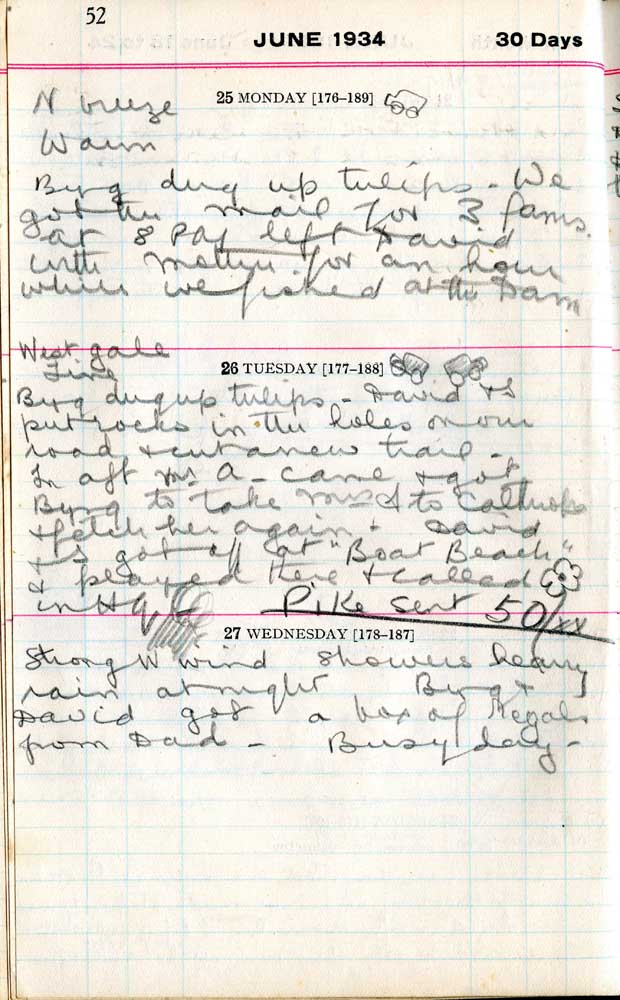 52
JUNE 1934 30 Days
25 MONDAY [176–189]
N breeze
Warm
Byng dug up tulips - We
got the mail for 3 fams.
at 8 PM left David
with mother for an hour
while we fished at the Dam
West gale
Fine
26 TUESDAY [177–188]
Byng dug up tulips - David & I
put rocks in the holes on our
road & cut a new trail -
In aft Mr A - came & got
Byng to take Mrs A to Calthrops
& fetch her again & David
& I got off at "Boat Beach"
& played there & called
in H
Pike sent 50/xx
27 WEDNESDAY [178–187]
Strong W wind showers heavy
rain at night Byng &
David got a box of Regals
from Dad - Busy day -